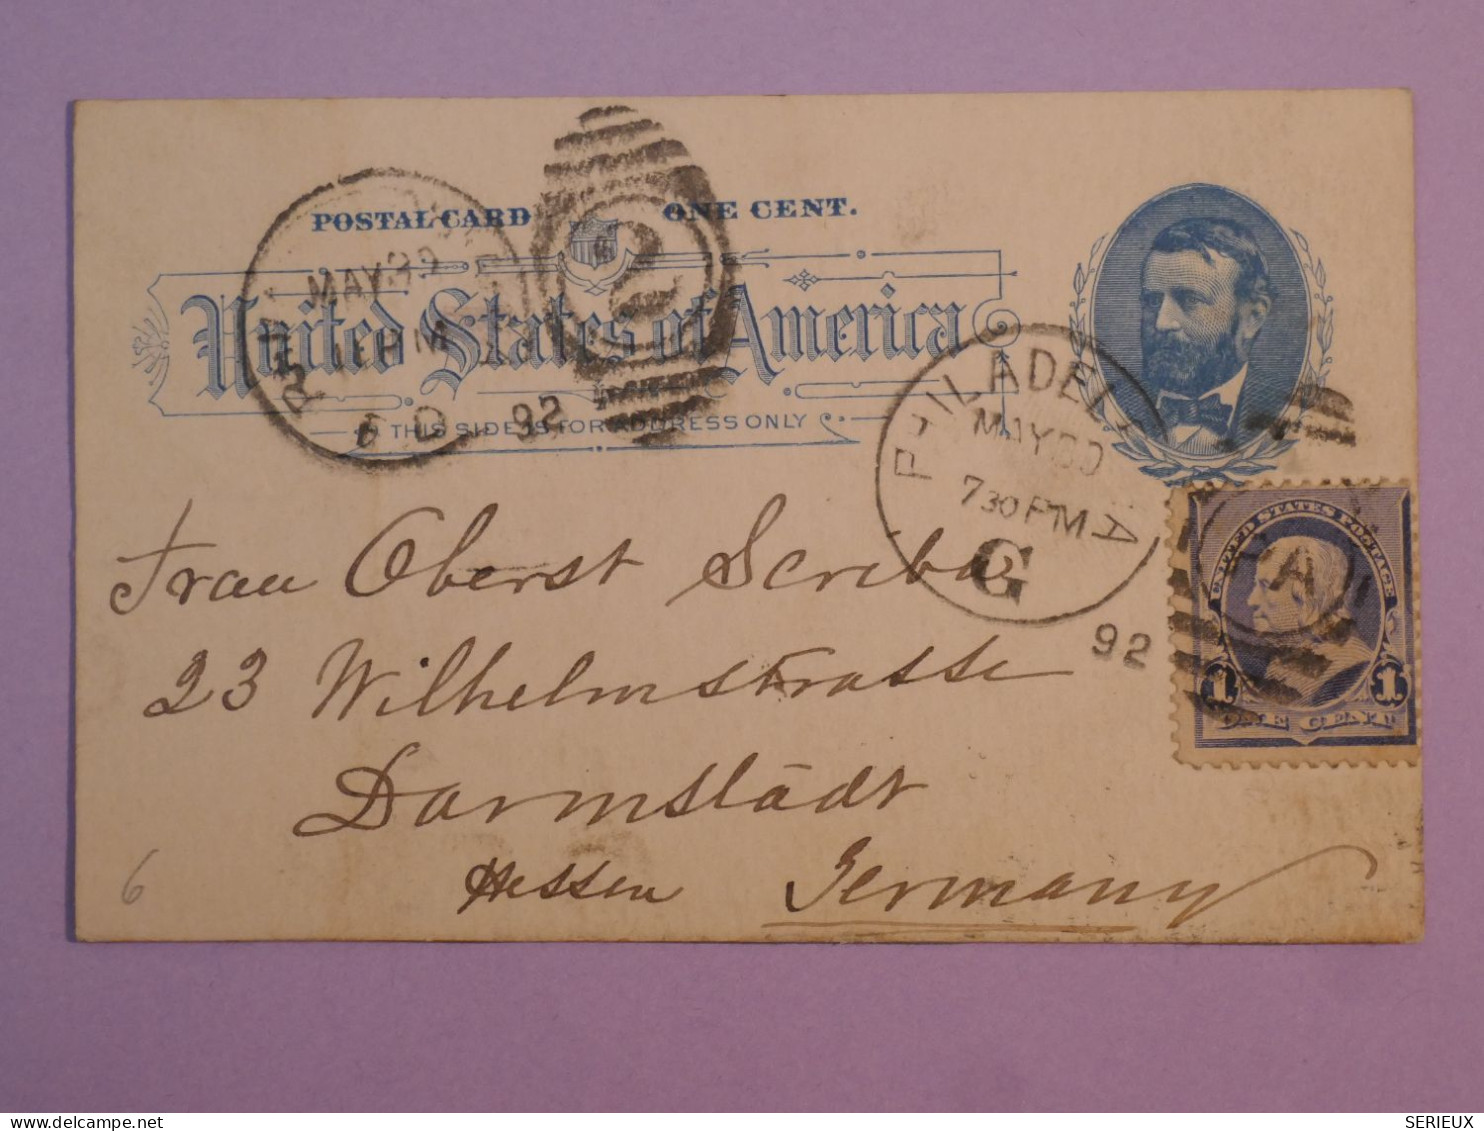 POSTAL CARD ONE CENT.
United States of America
THIS SIDE IS FOR ADDRESS ONLY
MAY 30
PM
92
2
PHILADEL A
MAY 30
730 PM
G
92
UNITED STATES POSTAGE
1 ONE CENT 1
Frau Oberst Scriba
23 Wilhelmstrasse
Darmstädt
Hessen Germany
6
SERIEUX